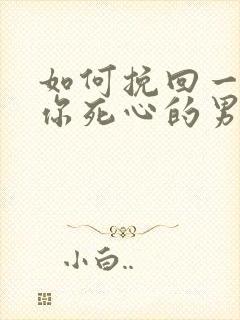 如何挽回一
你死心的男
小白..